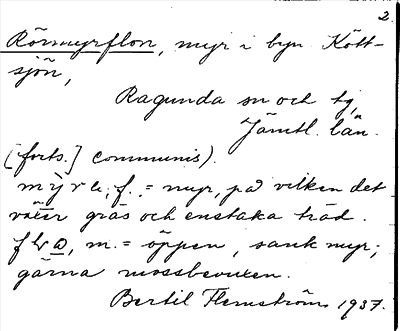 2.
Rörmyrflon, myr i byn Kött-
sjön,
Ragunda sn och tg,
Jämtl. län.
[forts.] communis).
mỳrʋ, f. = myr, på vilken det
växer gräs och enstaka träd.
flɷ, m. = öppen, sank myr;
gärna mossbevuxen.
Bertil Flemström 1937.